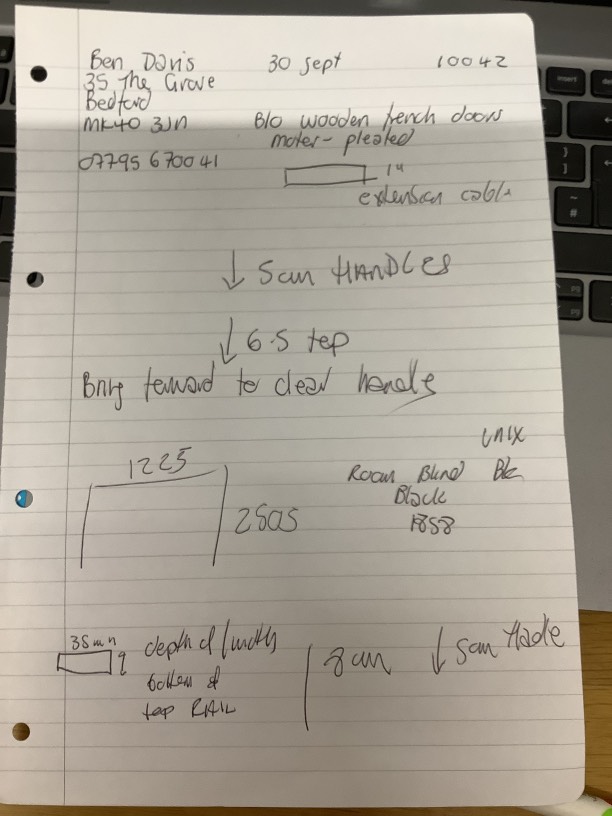 Ben Davis 30 sept 10042
35 The Grove
Bedford
MK40 3JN B/O wooden french doors
moter - pleated
07795 670041
extension cable
↓ 5cm HANDLES
↓ 6.5 top
Bring forward to clear handles
1225
UNIX
Room Blind Blc
2505 Block
1858
35mm depth of
bottom of
top RAIL
8cm ↓ 5cm Hadle